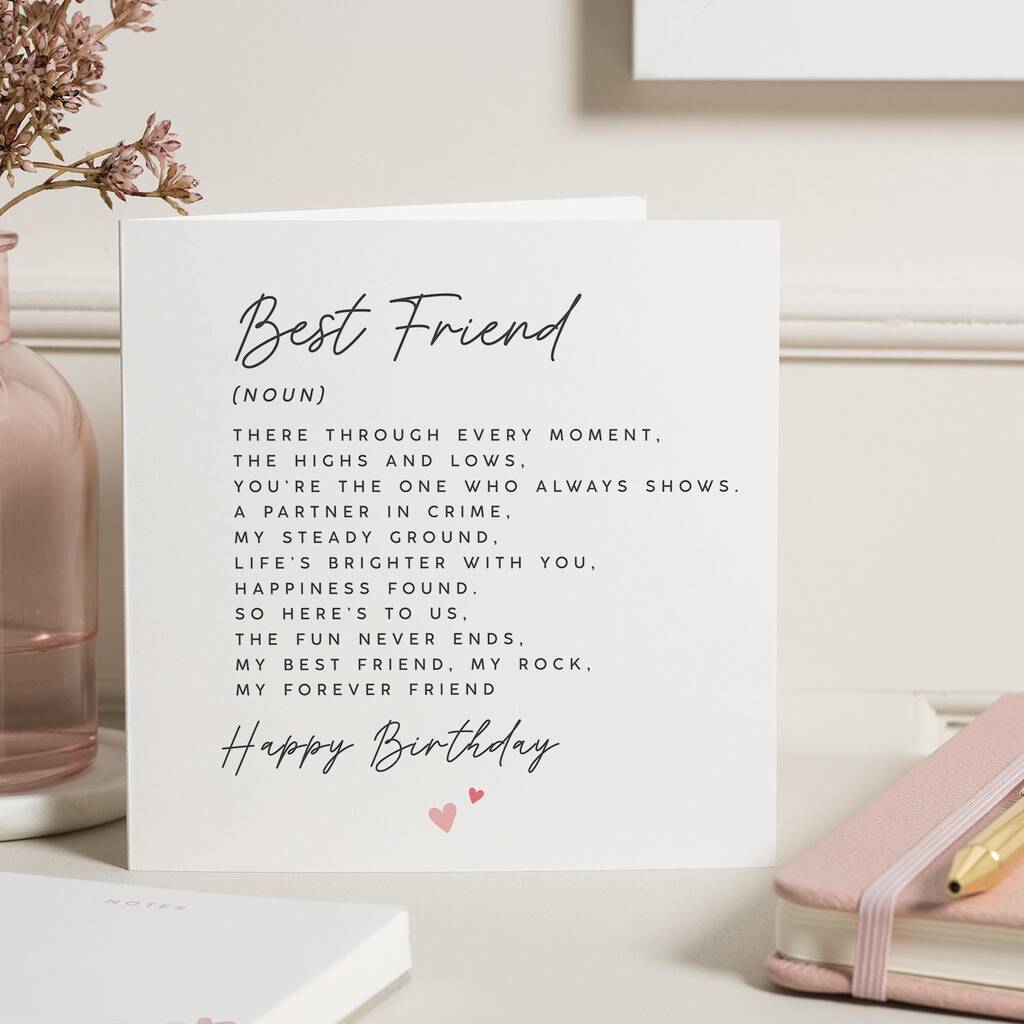 Best Friend
(NOUN)
THERE THROUGH EVERY MOMENT,
THE HIGHS AND LOWS,
YOU'RE THE ONE WHO ALWAYS SHOWS.
A PARTNER IN CRIME,
MY STEADY GROUND,
LIFE'S BRIGHTER WITH YOU,
HAPPINESS FOUND.
SO HERE'S TO US,
THE FUN NEVER ENDS,
MY BEST FRIEND, MY ROCK,
MY FOREVER FRIEND
Happy Birthday
NOTES